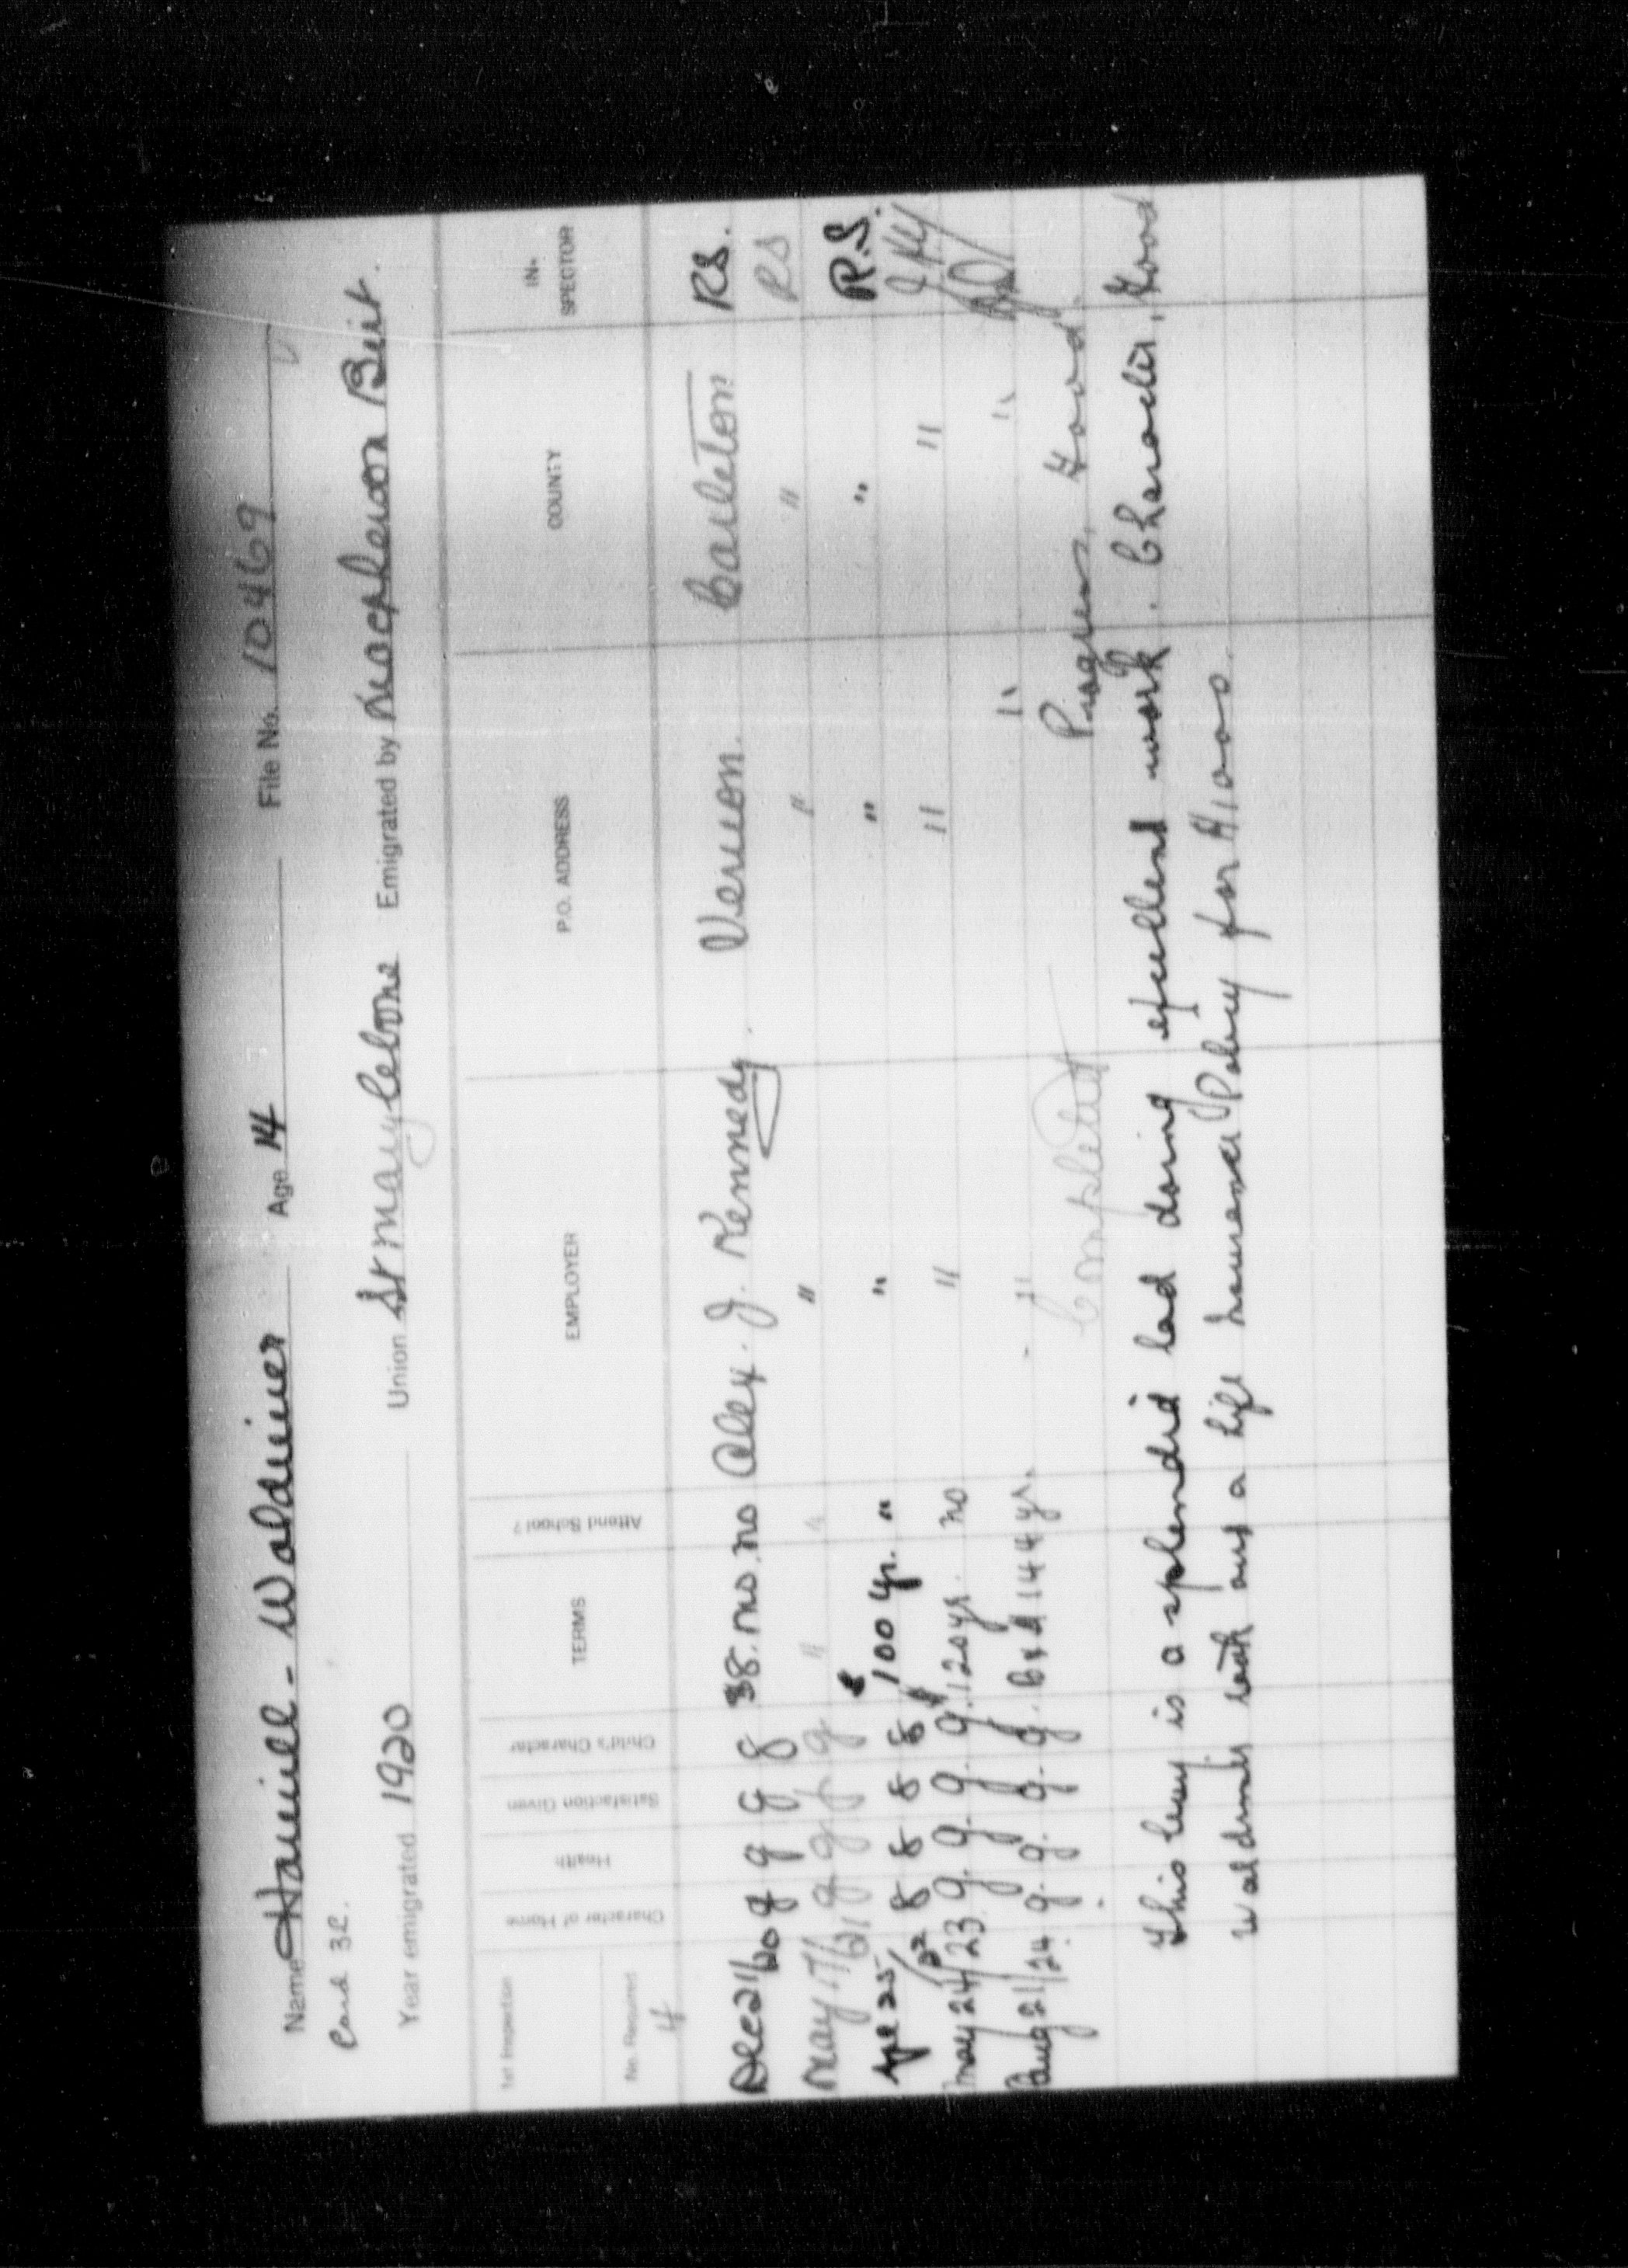 Name Hamill - Waldimer Age 14 File No. 10469
Card 32.
Year emigrated 1920 Union St Marylebone Emigrated by Macpherson Beit.
1st Inspection Character of Home Health Satisfaction Given Child's Character TERMS Attend School? EMPLOYER P.O. ADDRESS COUNTY IN-SPECTOR
No. Required
4
Dec 21/20 g g g g 38. mo. no Alex. J. Kennedy. Vernon. Carleton RS.
May 17/21 g g f g " " " " " RS
Apl 25/22 g g g g $100 yr. " " " " R.S.
May 24/23 g. g. g. g. $120 yr. no " " "
Aug 21/24 g. g. g. g. 144 yr. " " "
Completed Progress, Good.
This boy is a splendid lad doing excellent work. Character, Good
Waldimer and a life Insurance Policy for $1000.